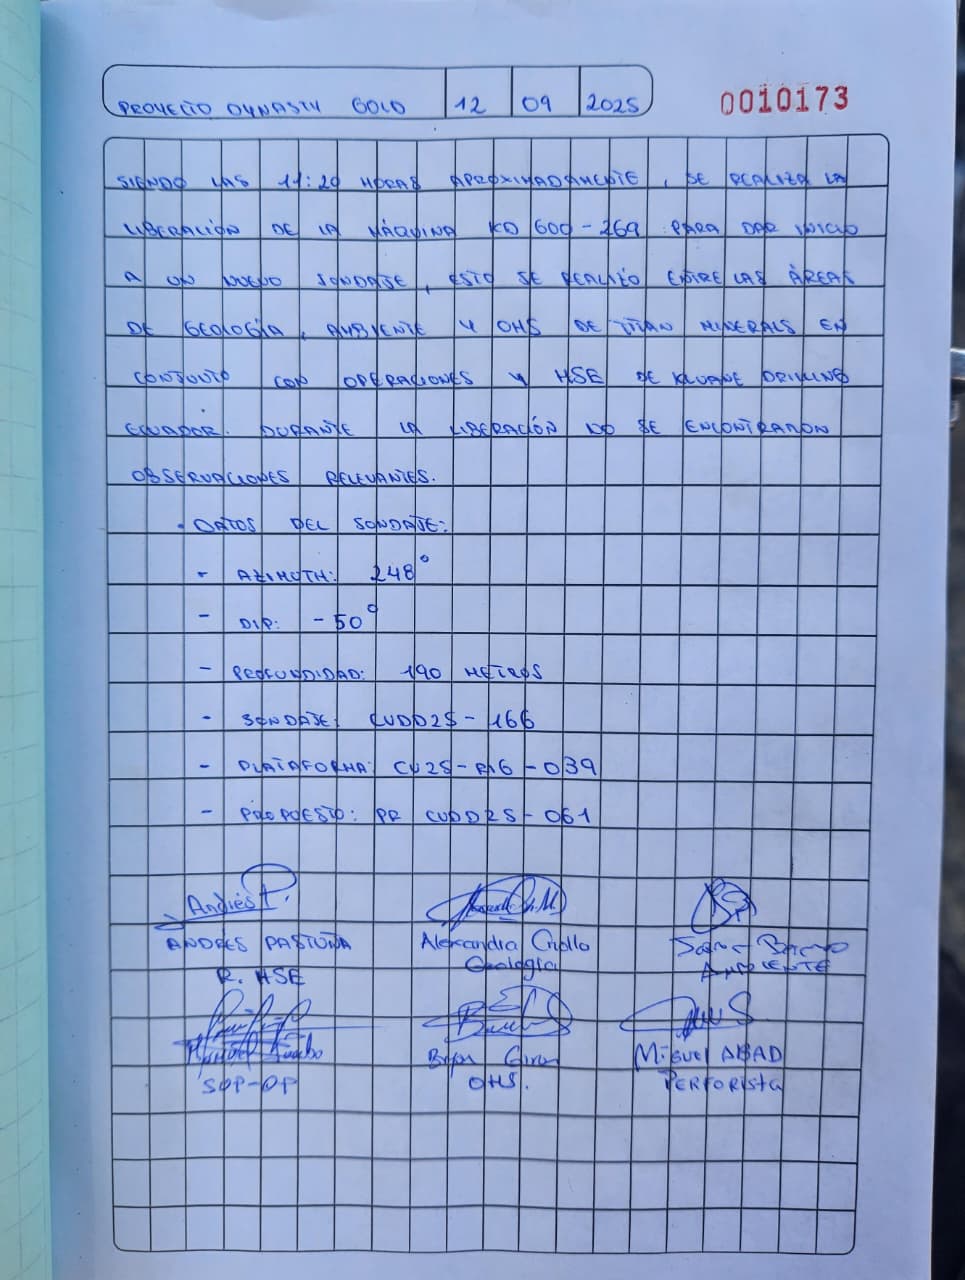 PROYECTO DYNASTY GOLD 12 09 2025
0010173
SIENDO LAS 11:20 HORAS APROXIMADAMENTE, SE REALIZA LA
LIBERACIÓN DE LA MÁQUINA KD 600-269 PARA DAR INICIO
A UN NUEVO SONDAJE, ESTO SE REALIZÓ ENTRE LAS ÁREAS
DE GEOLOGÍA, AMBIENTE Y OHS DE TITAN MINERALS EN
CONJUNTO CON OPERACIONES Y HSE DE KLUANE DRILLING
ECUADOR. DURANTE LA LIBERACIÓN NO SE ENCONTRARON
OBSERVACIONES RELEVANTES.
• DATOS DEL SONDAJE:
- AZIMUTH: 248°
- DIP: -50°
- PROFUNDIDAD: 190 METROS
- SONDAJE: CUDD25-166
- PLATAFORMA: CV25- -039
- PROPUESTO: PR CUDD25-061
Andrés P.
ANDRÉS PASTUÑA Alexandra Criollo
R. HSE Geología AMBIENTE
Manuel Miguel ABAD
SOP-OP OHS. PERFORISTA